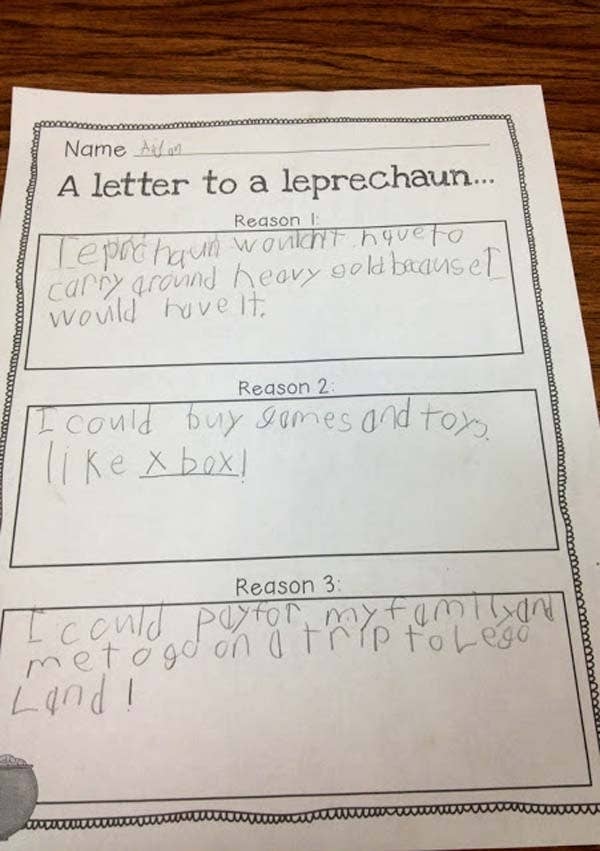 Name Aidan
A letter to a leprechaun...
Reason 1:
Leprchaun wouldn't have to
carry around heavy gold because I
would have it.
Reason 2:
I could buy games and toys
like x box!
Reason 3:
I could pay for my family and
me to go on a trip to Lego
Land!